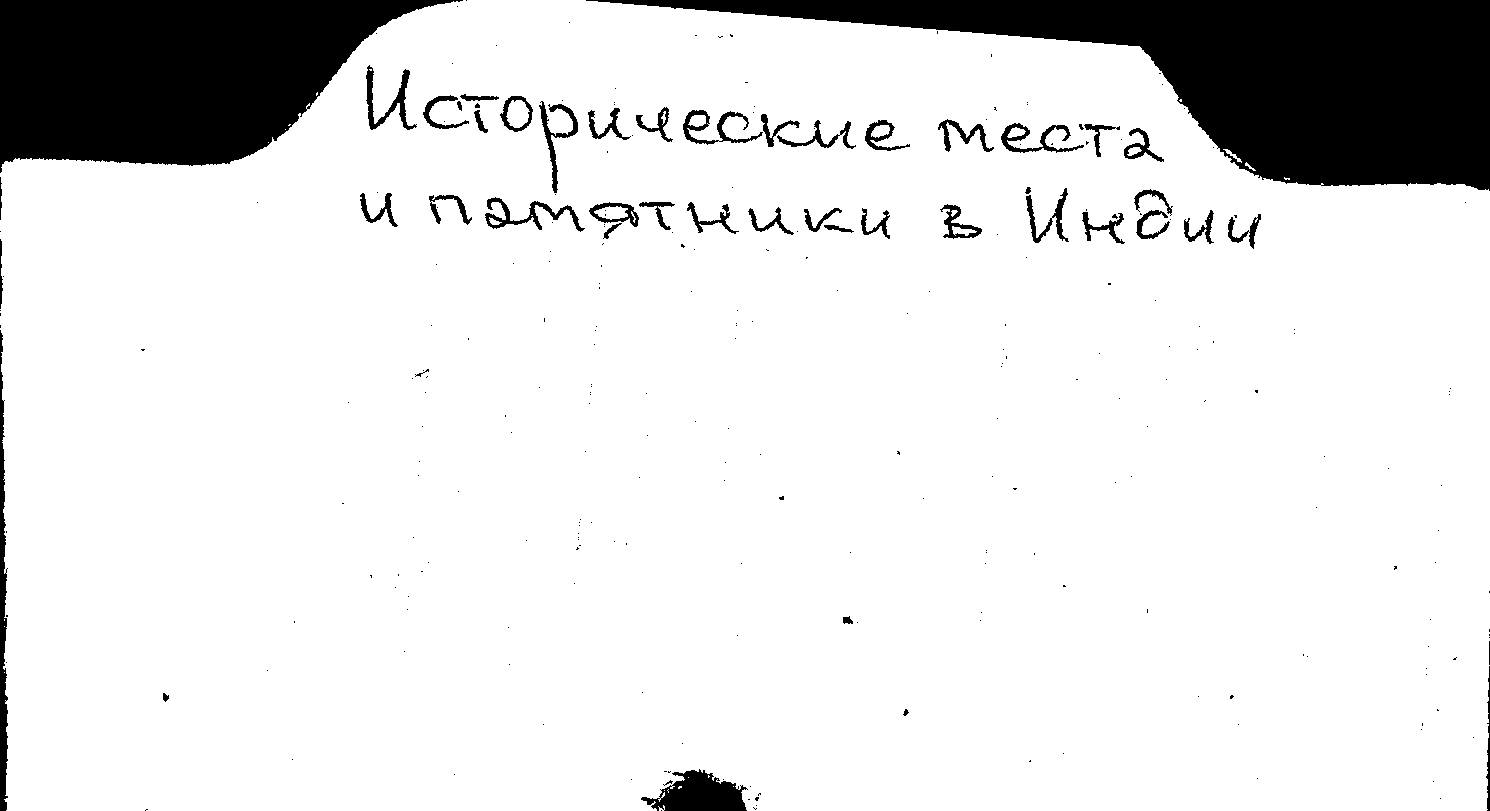 Исторические места
и памятники в Индии